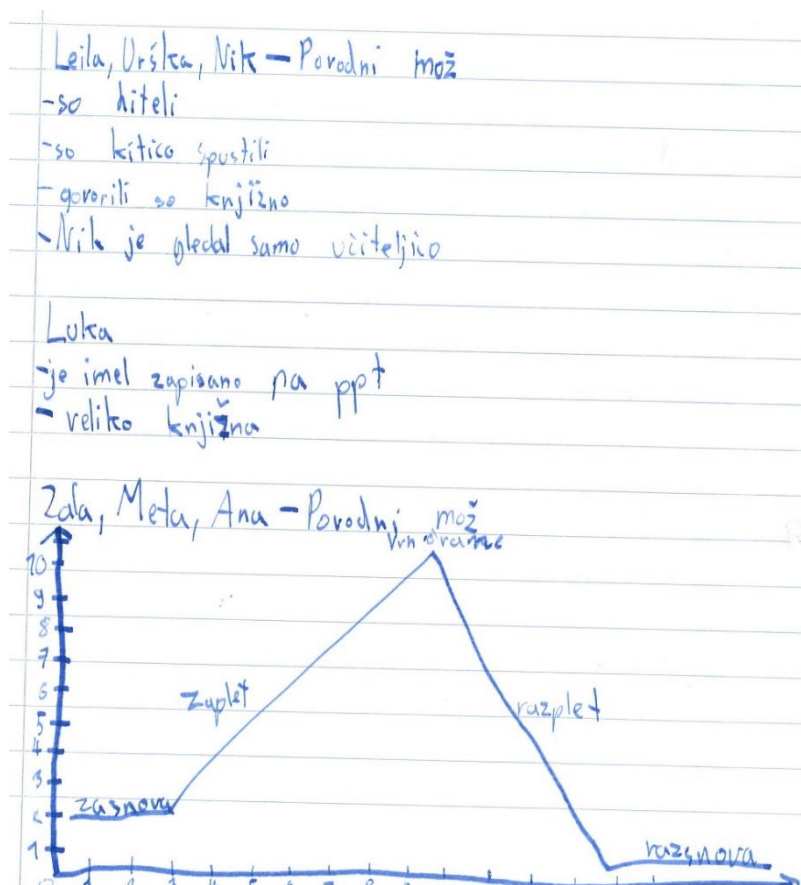 Leila, Urška, Nik – Povodni mož
-so hiteli
-so kitico spustili
-govorili so knjižno
-Nik je gledal samo učiteljico
Luka
-je imel zapisano na ppt
- veliko knjižna
Zala, Meta, Ana – Povodni mož
vrh drame
10
9
8
7
zaplet
6
razplet
5
4
3
zasnova
2
1
razsnova